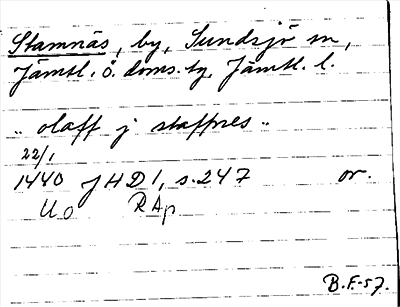 Stamnäs, by, Sundsjö sn,
Jämtl. ö. doms. tg, Jämtl. l.
"olaff j staffnes"
22/1
1440 JHD 1, s. 247 or.
Uo RAp
B.F.-57.